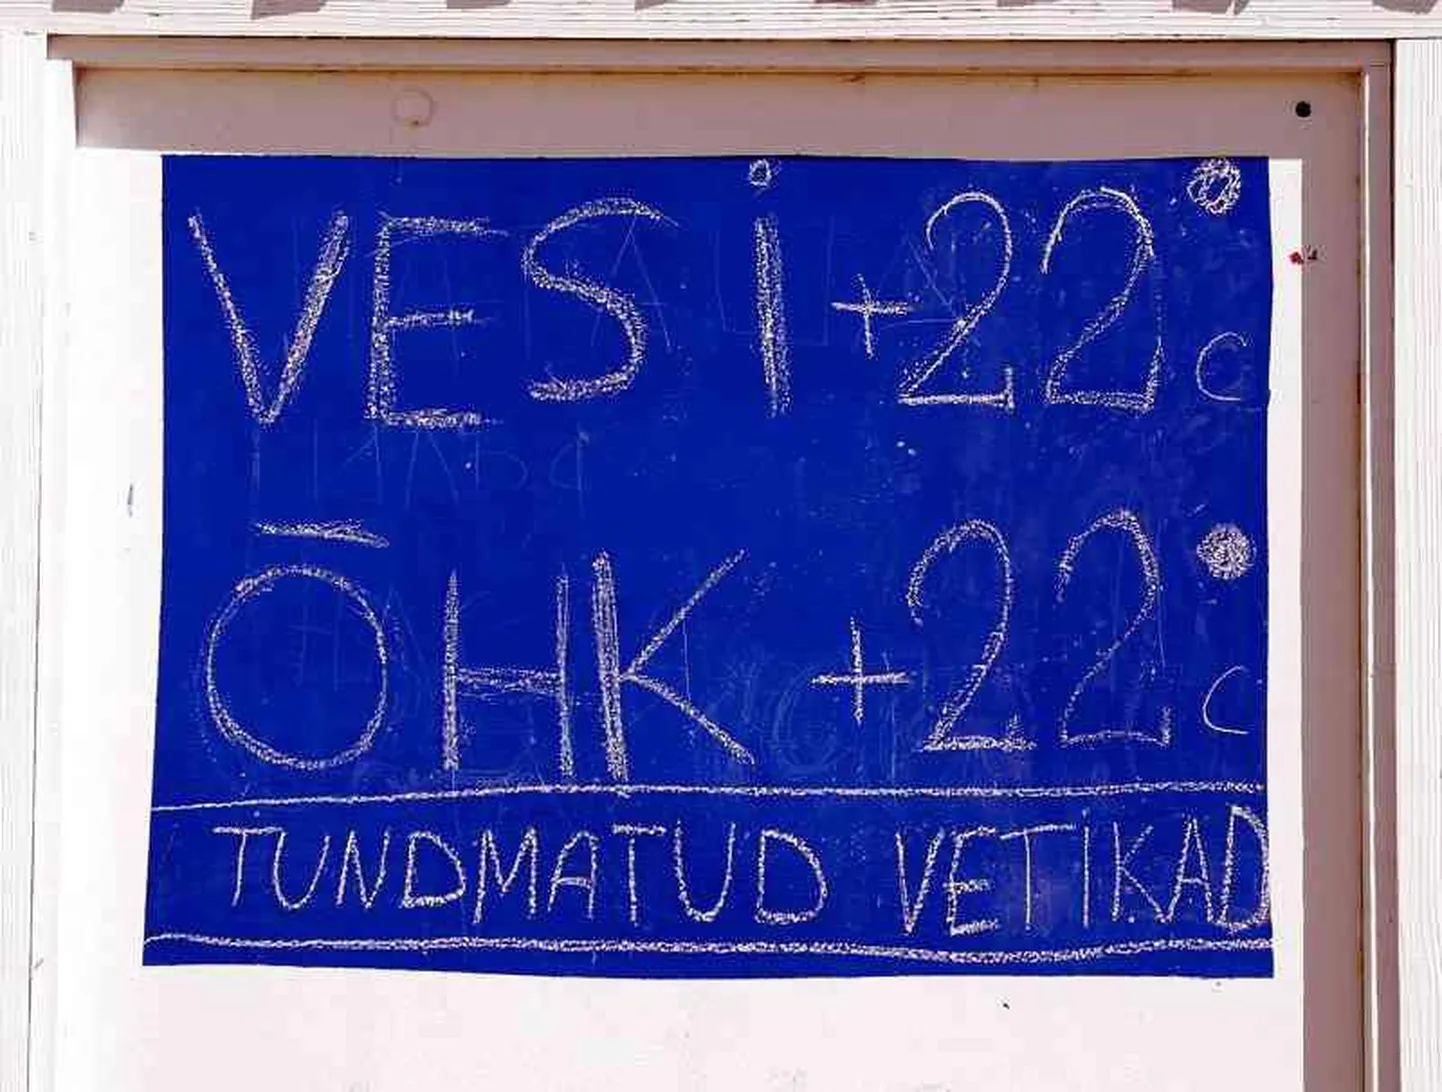 VESi +22°c
ÕHK +22°c
TUNDMATUD VETIKAD